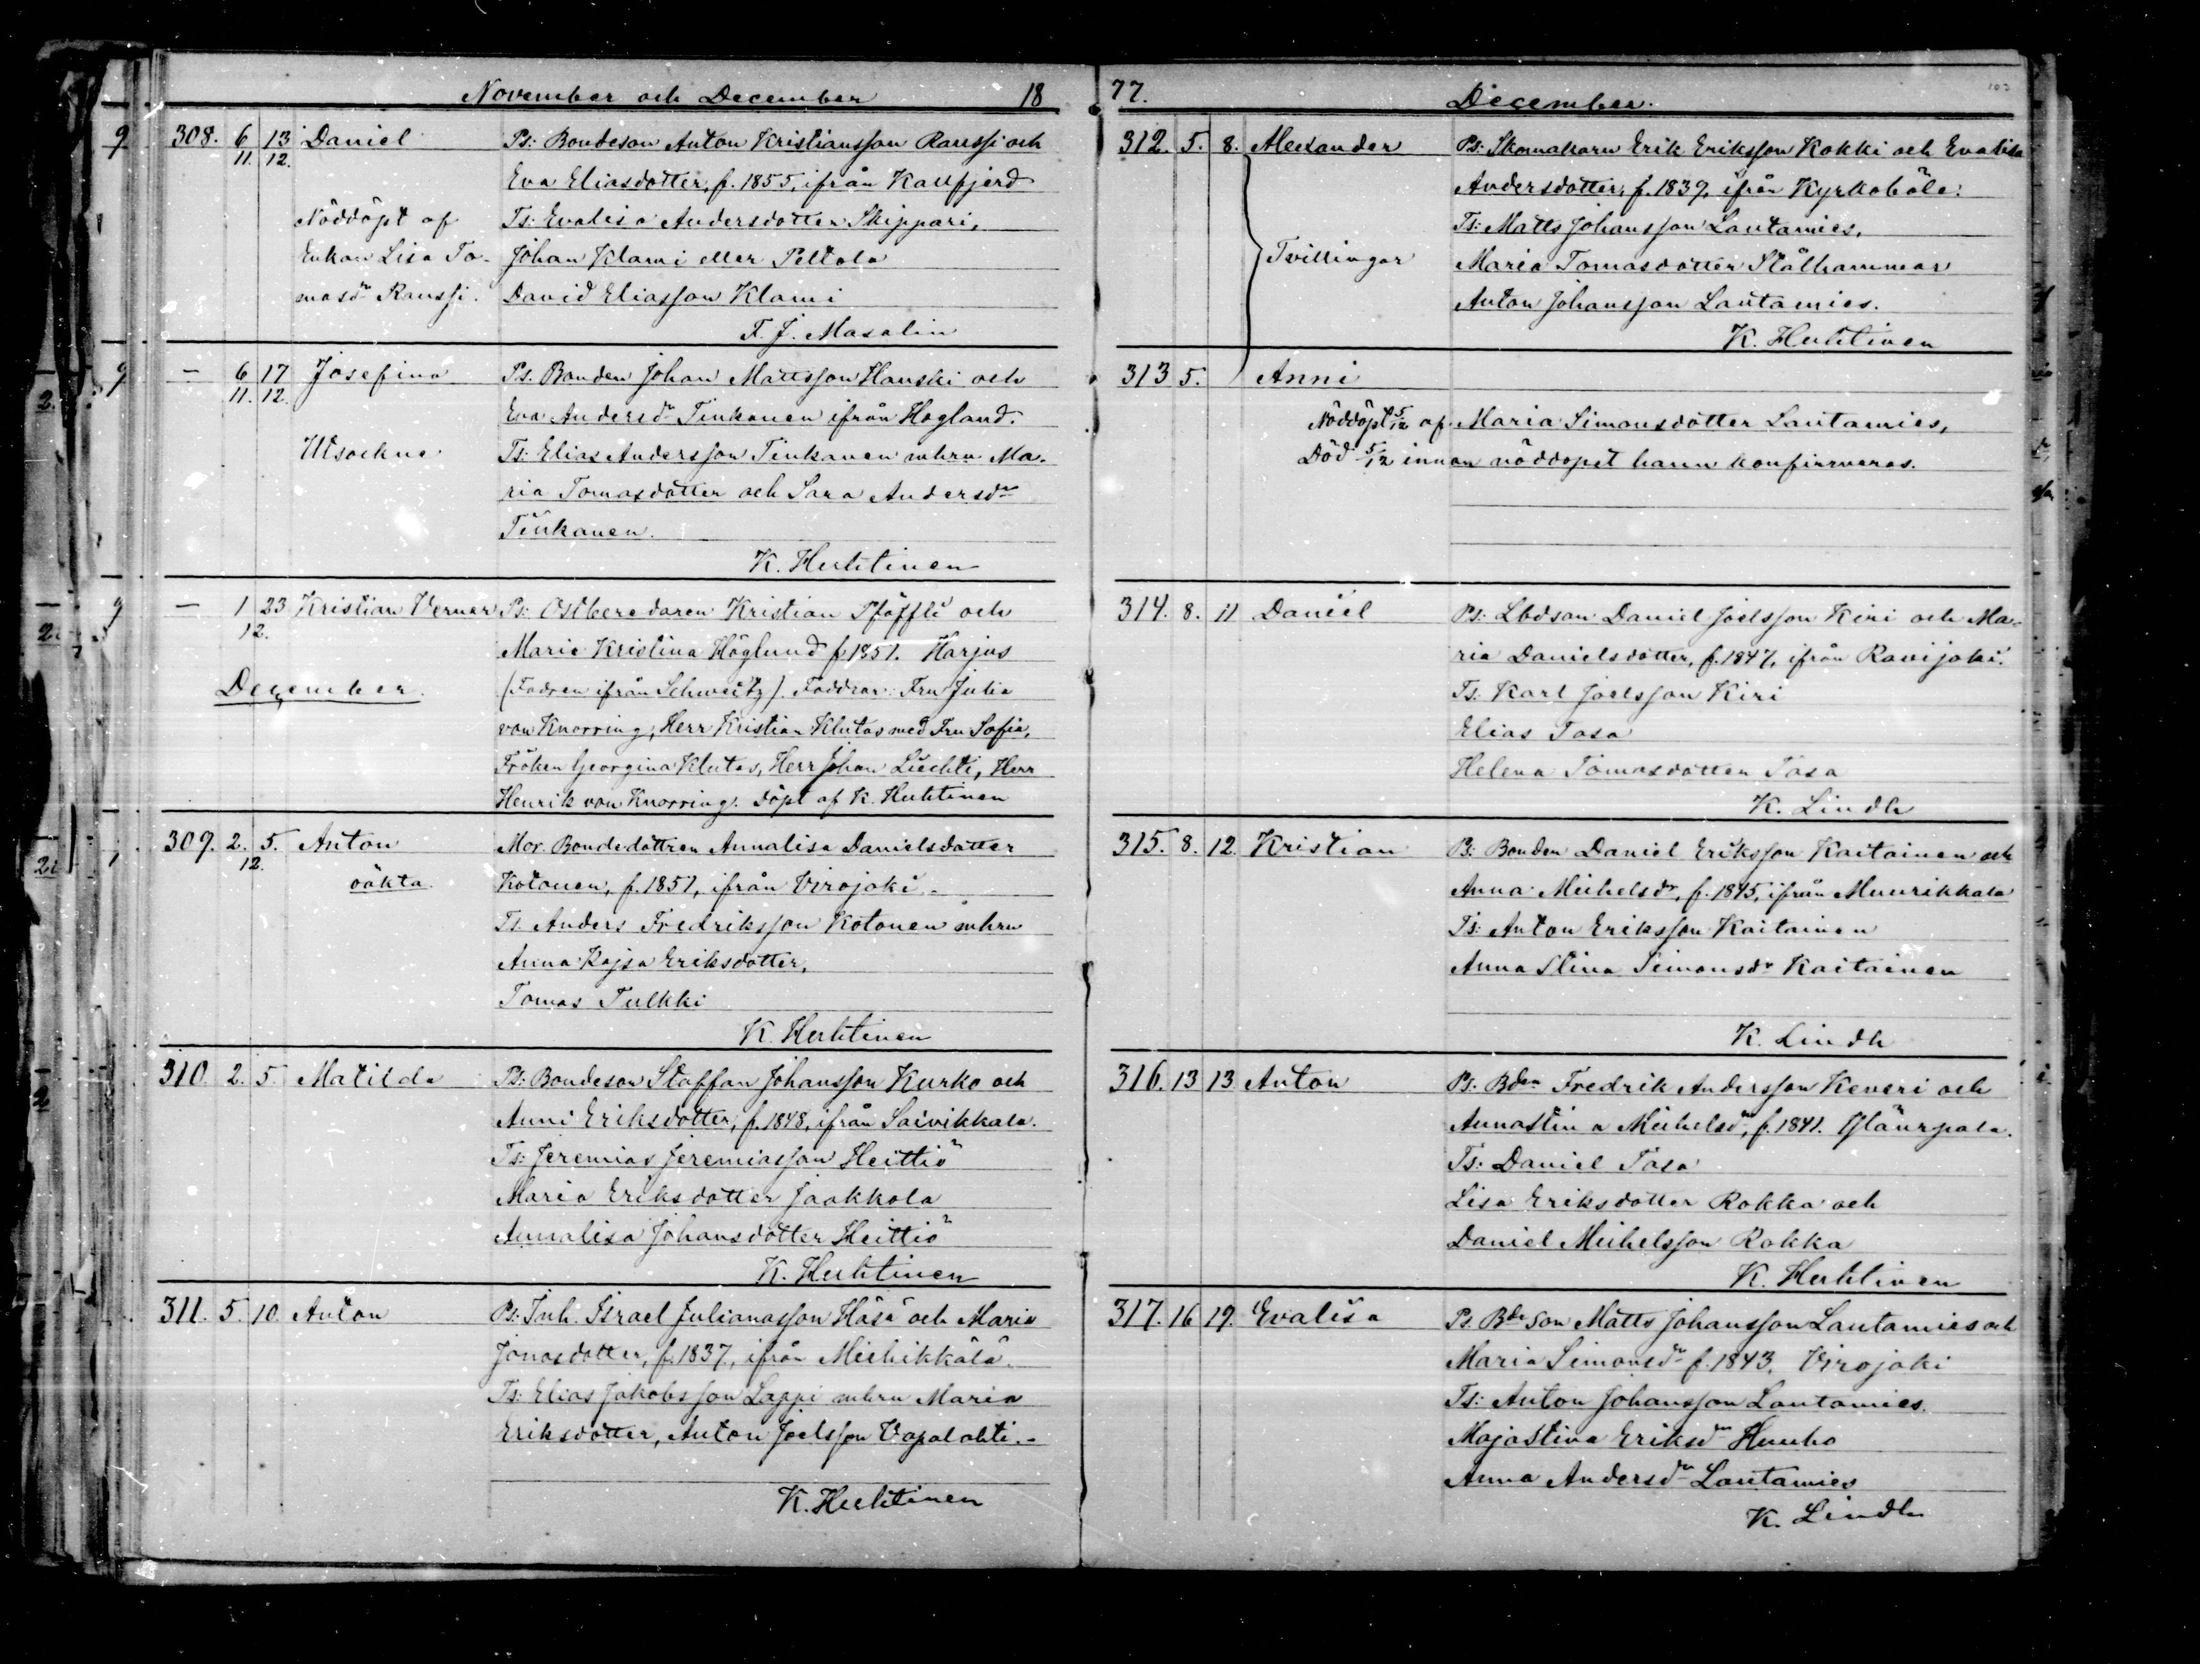 November och December 18
308. 6 13 Daniel Ps: Bondeson Anton Kristiansson Ranssi och
11. 12. Eva Eliasdotter, f. 1855, ifrån Kallfjerd
Nöddöpt af Ts: Evalisa Andersdotter Skippari,
Enkan Lisa To- Johan Klami eller Peltola
masdr Ranssi. David Eliasson Klami
F. J. Masalin
— 6 17 Josefina Ps. Bonden Johan Mattsson Hanski och
11. 12. Eva Andersdr Tinkanen ifrån Hogland.
Utsockne Ts: Elias Andersson Tinkanen mhru Ma-
ria Tomasdotter och Sara Andersdr
Tinkanen.
K. Huhtinen
— 1 23 Kristian Verner Ps: Ostberedaren Kristian Pfäffli och
12. Maria Kristina Höglund f 1851. Harjus
December. (Fadren ifrån Schweitz). Faddrar: Fru Julia
von Knorring, Herr Kristian Klutas med Fru Sofia,
Fröken Georgina Klutas, Herr Johan Liechti, Herr
Henrik von Knorring. Döpt af K. Huhtinen
309. 2. 5. Anton Mor. Bondedottren Annalisa Danielsdotter
12. oäkta. Kotonen, f. 1851, ifrån Virojoki.
Ts. Anders Fredriksson Kotonen mhru
Anna Kajsa Eriksdotter,
Tomas Tulkki
K. Huhtinen
310 2. 5. Matilda Ps: Bondeson Staffan Johansson Kurko och
Anni Eriksdotter, f. 1848, ifrån Saivikkala.
Ts: Jeremias Jeremiasson Heittiö
Maria Eriksdotter Jaakkola
Annalisa Johansdotter Heittiö
K. Huhtinen
311. 5. 10. Anton Ps: Inh. Israel Julianasson Häsä och Maria
Jonasdotter, f. 1837, ifrån Miehikkälä.
Ts: Elias Jakobsson Lappi mhru Maria
Eriksdotter, Anton Joelsson Vapalahti.-
K. Huhtinen
77. December.
312. 5. 8. Alexander Ps: Skomakarn Erik Eriksson Kokki och Evalisa
Andersdotter, f. 1839, ifrån Kyrkoböle:
Ts: Matts Johansson Lautamies,
Tvillingar Maria Tomasdotter Stålhammar
Anton Johansson Lautamies.
K. Huhtinen
313 5. Anni
Nöddöpt 5/12 af Maria Simonsdotter Lautamies,
Död 5/12 innan nöddopet hann konfirmeras.
314. 8. 11 Daniel Ps: Lbdson Daniel Joelsson Kiri och Ma-
ria Danielsdotter, f. 1847, ifrån Ravijoki.
Ts: Karl Joelsson Kiri
Elias Tasa
Helena Tomasdotter Tasa
K. Lindh
315. 8. 12. Kristian Ps: Bonden Daniel Eriksson Kaitainen och
Anna Michelsdr, f. 1845, ifrån Muurikkala
Ts: Anton Eriksson Kaitainen
Anna Stina Simonsdr Kaitainen
K. Lindh
316. 13 13 Anton Ps: Bdn Fredrik Andersson Keveri och
Annastina Michelsdr, f. 1841.
Ts: Daniel Tasa
Lisa Eriksdotter Rokka och
Daniel Michelsson Rokka
K. Huhtinen
317. 16 19. Evalisa Ps. Bdeson Matts Johansson Lautamies och
Maria Simonsdr f. 1843. Virojoki
Ts: Anton Johansson Lautamies.
Majastina Eriksdr Huuho
Anna Andersdr Lautamies
K. Lindh